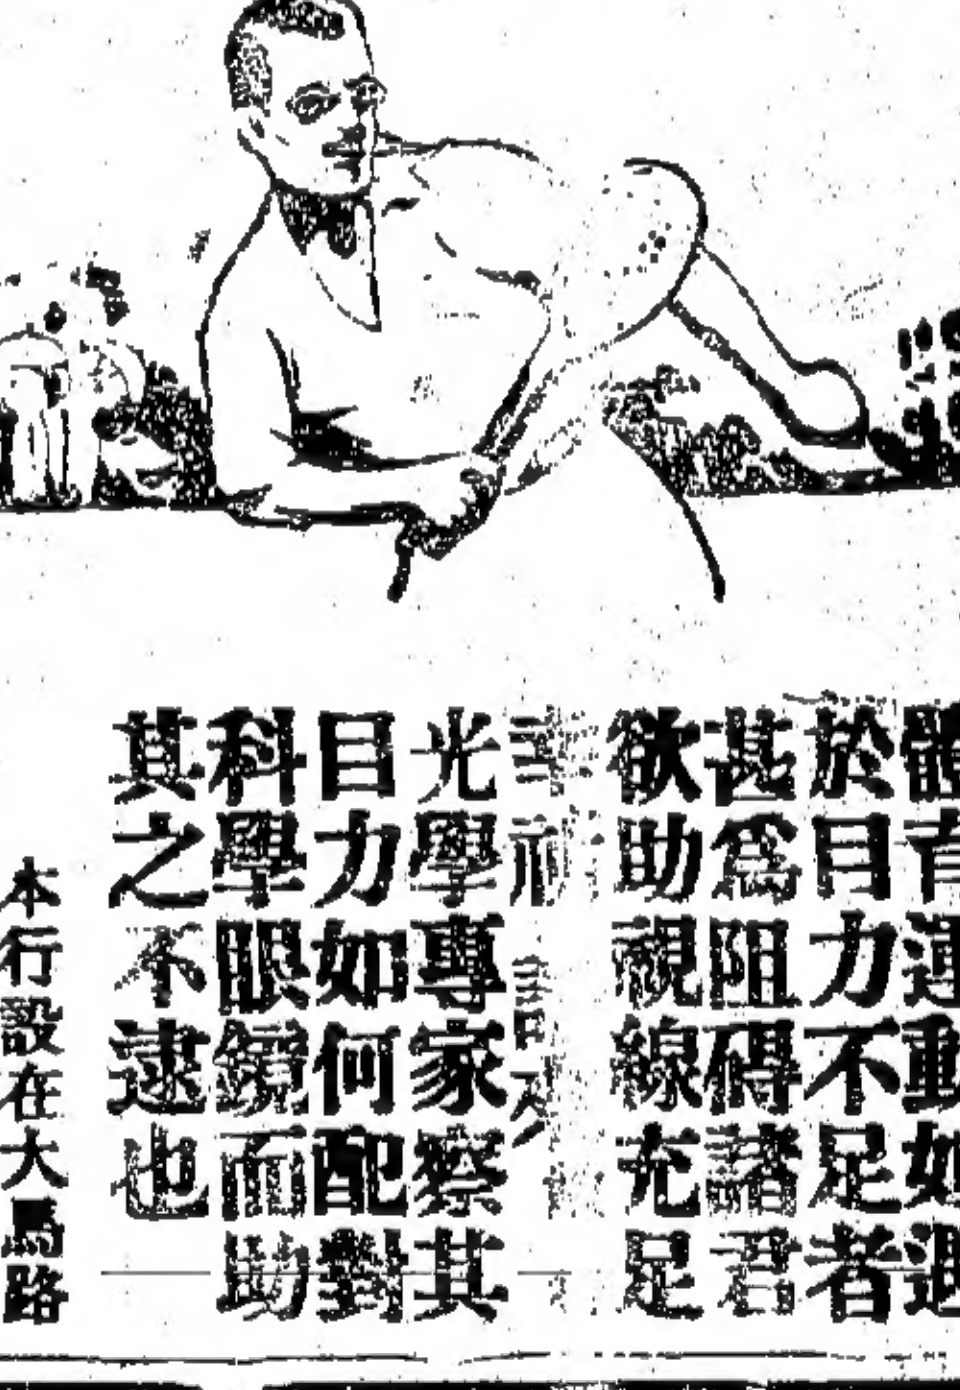 體育運動如遇
於目力不足者
甚爲阻礙諸君
欲助視線充足
光學專家察其
目力如何配對
科學眼鏡而助
其之不逮也
本行設在大馬路